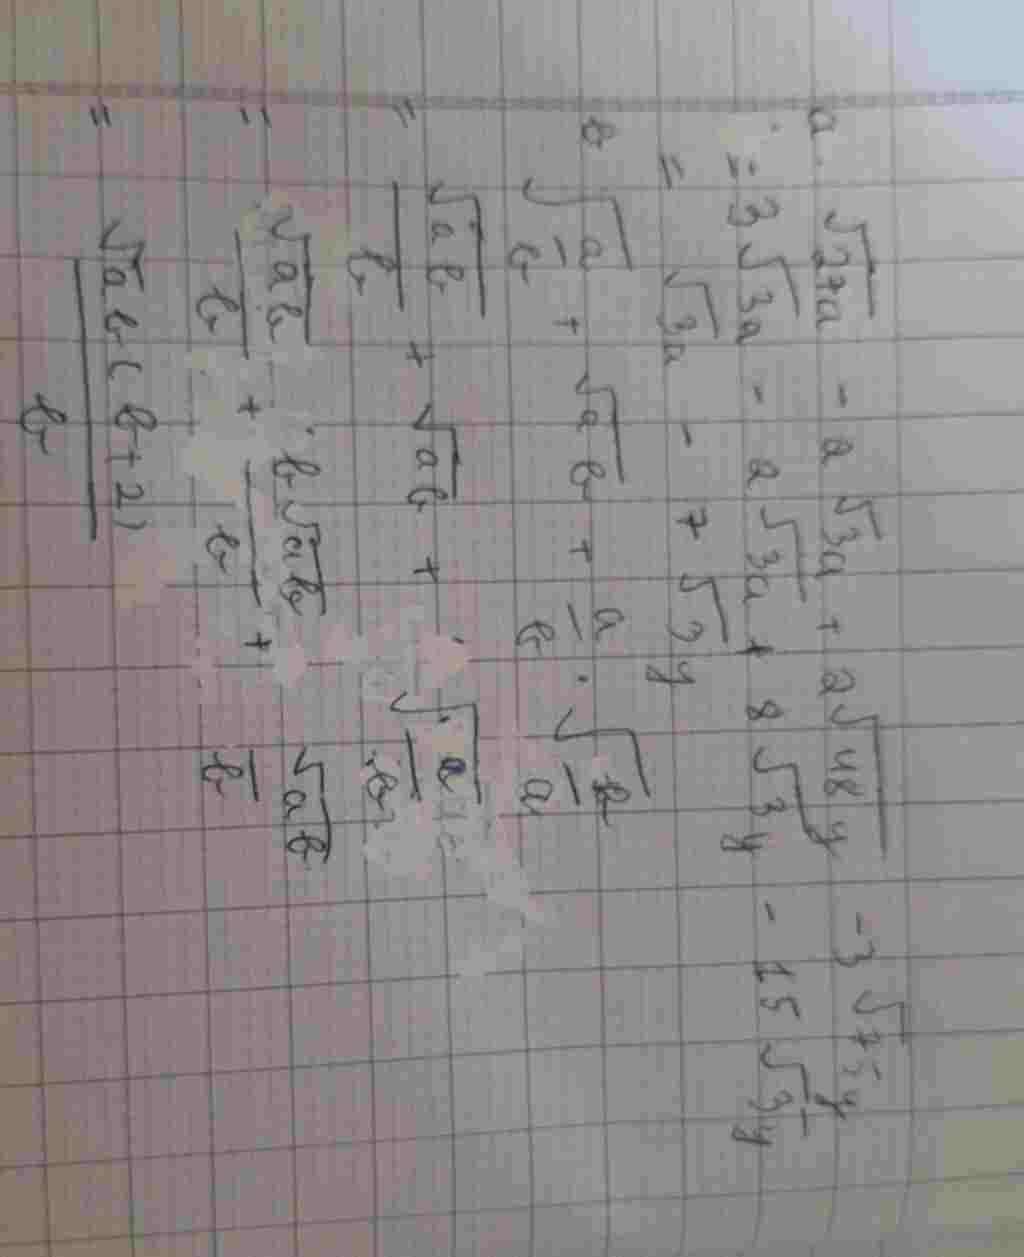 a. √27a - 2√3a + 2√48y - 3√75y
= 3√3a - 2√3a + 8√3y - 15√3y
= √3a - 7√3y
b √(a/b) + √ab + a/b · √(b/a)
= √ab/b + √ab + √(a/b)
= √ab/b + b√ab/b + √ab/b
= √ab(b+2)/b